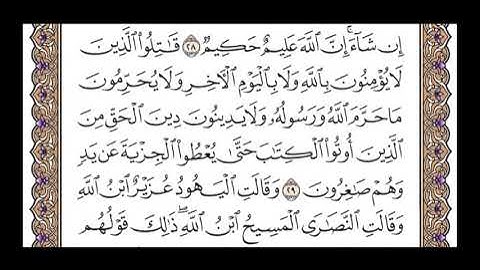 إِن شَآءَ ۚ إِنَّ ٱللَّهَ عَلِيمٌ حَكِيمٌ ۝٢٨ قَٰتِلُوا۟ ٱلَّذِينَ
لَا يُؤْمِنُونَ بِٱللَّهِ وَلَا بِٱلْيَوْمِ ٱلْـَٔاخِرِ وَلَا يُحَرِّمُونَ
مَا حَرَّمَ ٱللَّهُ وَرَسُولُهُۥ وَلَا يَدِينُونَ دِينَ ٱلْحَقِّ مِنَ
ٱلَّذِينَ أُوتُوا۟ ٱلْكِتَٰبَ حَتَّىٰ يُعْطُوا۟ ٱلْجِزْيَةَ عَن يَدٍ
وَهُمْ صَٰغِرُونَ ۝٢٩ وَقَالَتِ ٱلْيَهُودُ عُزَيْرٌ ٱبْنُ ٱللَّهِ
وَقَالَتِ ٱلنَّصَٰرَى ٱلْمَسِيحُ ٱبْنُ ٱللَّهِ ۖ ذَٰلِكَ قَوْلُهُم